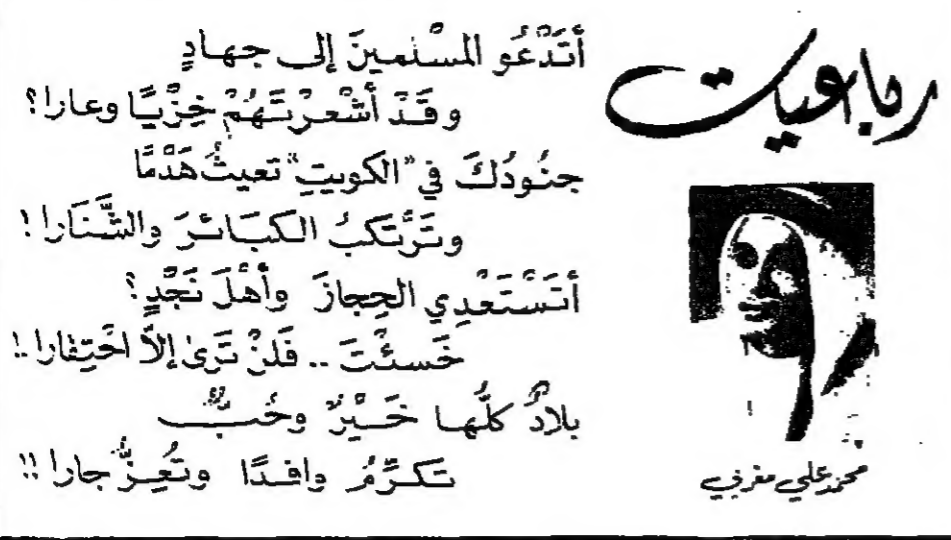 رباعيات
محمد علي مغربي
أَتَدْعُو المسْلمينَ إلى جهادٍ
وقَدْ أشْعرْتَهُمْ خِزْيًا وعارا؟
جنُودُكَ في "الكويتِ" تعيثُ هَدْمًا
وتَرْتكبُ الكبَائرَ والشَّنَارا!
أتَسْتَعْدِي الحِجازَ وأهْلَ نَجْدٍ؟
خَسئْتَ .. فَلَنْ تَرىٰ إلاَّ احْتِقارا..!
بلادٌ كلُّها خَيْرٌ وحُبٌّ
تكَرِّمُ وافدًا وتُعِزُّ جارا!!